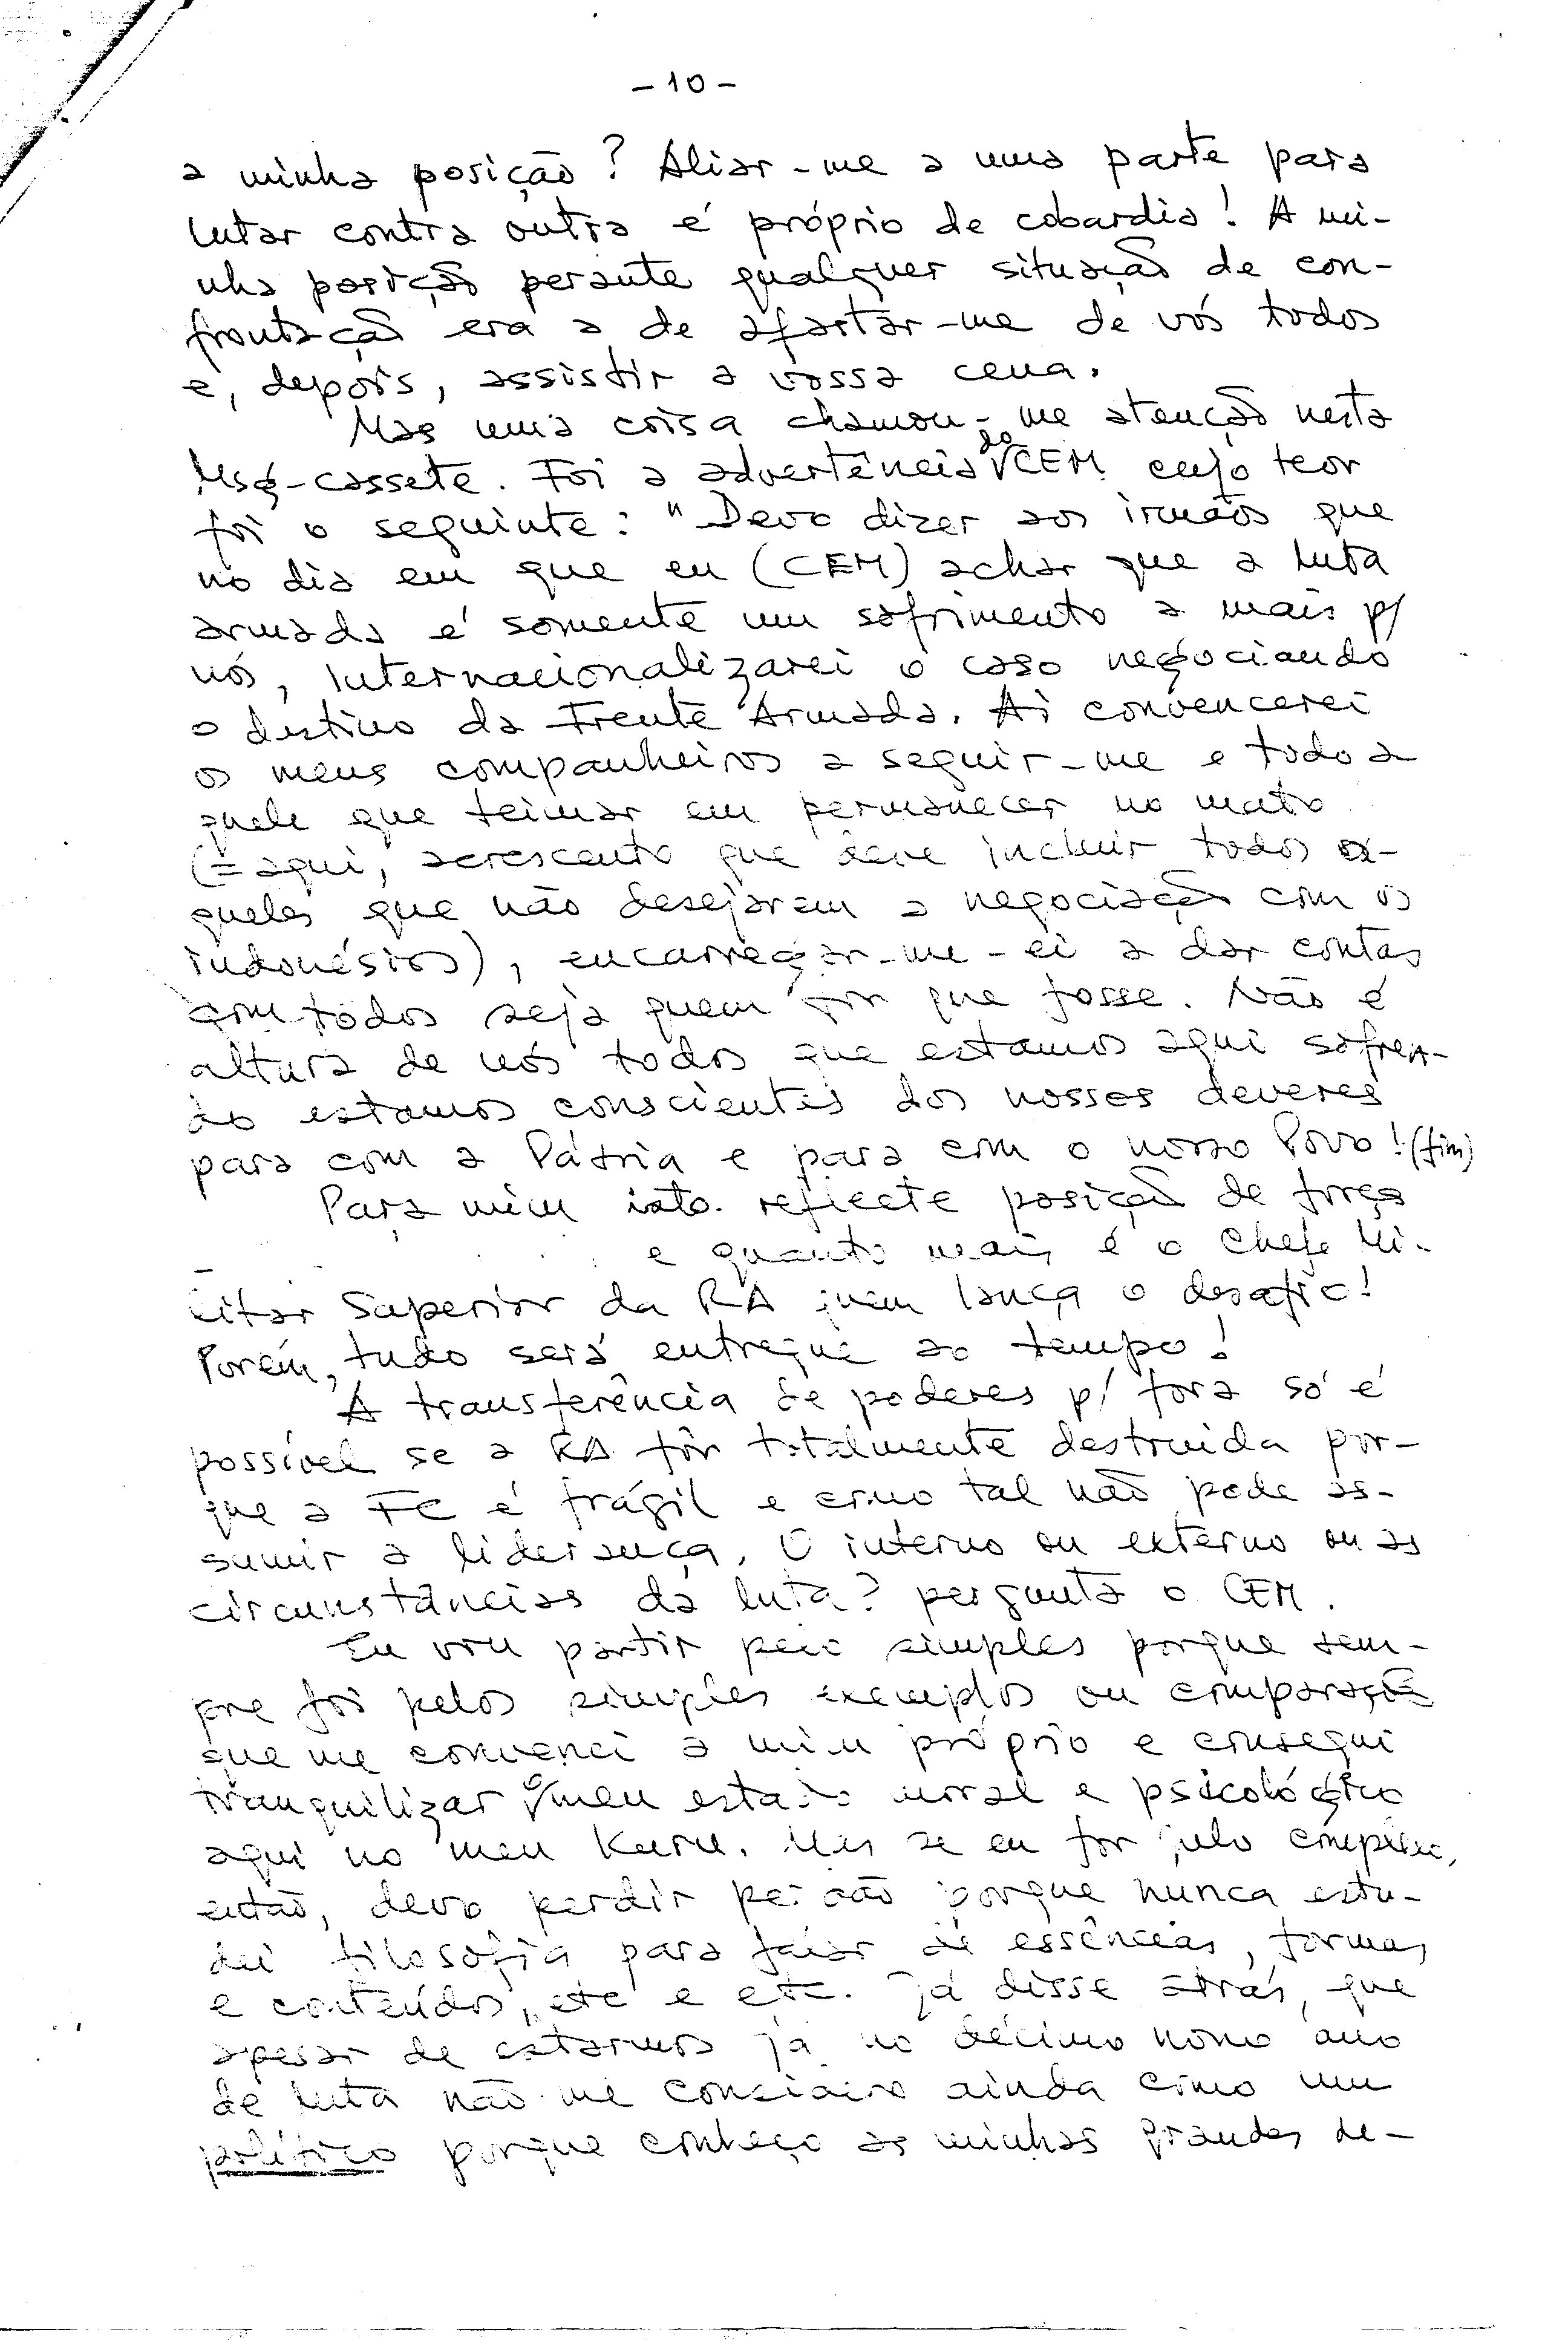 - 10 -
a minha posição? Aliar-me a uma parte para
lutar contra outra é próprio de cobardia! A mi-
nha posição perante qualquer situação de con-
frontação era a de afastar-me de vós todos
e, depois, assistir a vossa cena.
Mas uma coisa chamou-me atenção nesta
Msg-cassete. Foi a advertência do CEM cujo teor
foi o seguinte: "Devo dizer aos irmãos que
no dia em que eu (CEM) achar que a luta
armada é somente um sofrimento a mais p/
nós, internacionalizarei o caso negociando
o destino da Frente Armada. Aí convencerei
os meus companheiros a seguir-me e todo a
quele que teimar em permanecer no mato
(= aqui, acrescento que deve incluir todos a-
queles que não desejarem a negociação com os
indonésios), encarregar-me-ei a dar contas
com todos seja quem for que fosse. Não é
altura de nós todos que estamos aqui sofren-
do estamos conscientes dos nossos deveres
para com a Pátria e para com o nosso Povo! (fim)
Para mim isto reflecte posição de força
e quanto mais é o Chefe Mi-
litar Superior da RA quem lança o desafio!
Porém, tudo será entregue ao tempo!
A transferência de poderes p/ fora só é
possível se a RA fôr totalmente destruida por-
que a FC é frágil e como tal não pode as-
sumir a liderança. O interno ou externo ou as
circunstâncias da luta? pergunta o CEM.
Eu vou partir pelo simples porque sem-
pre foi pelos simples exemplos ou comparação
que me convenci a mim próprio e consegui
tranquilizar o meu estado moral e psicológico
aqui no meu Keru. Mas se eu for pelo
então, devo perdir perdão porque nunca estu-
dei filosofia para falar de essências, formas
e conteúdos, etc e etc. Já disse atrás, que
apesar de estarmos já no décimo nono ano
de luta não me considero ainda como um
político porque conheço as minhas grandes de-